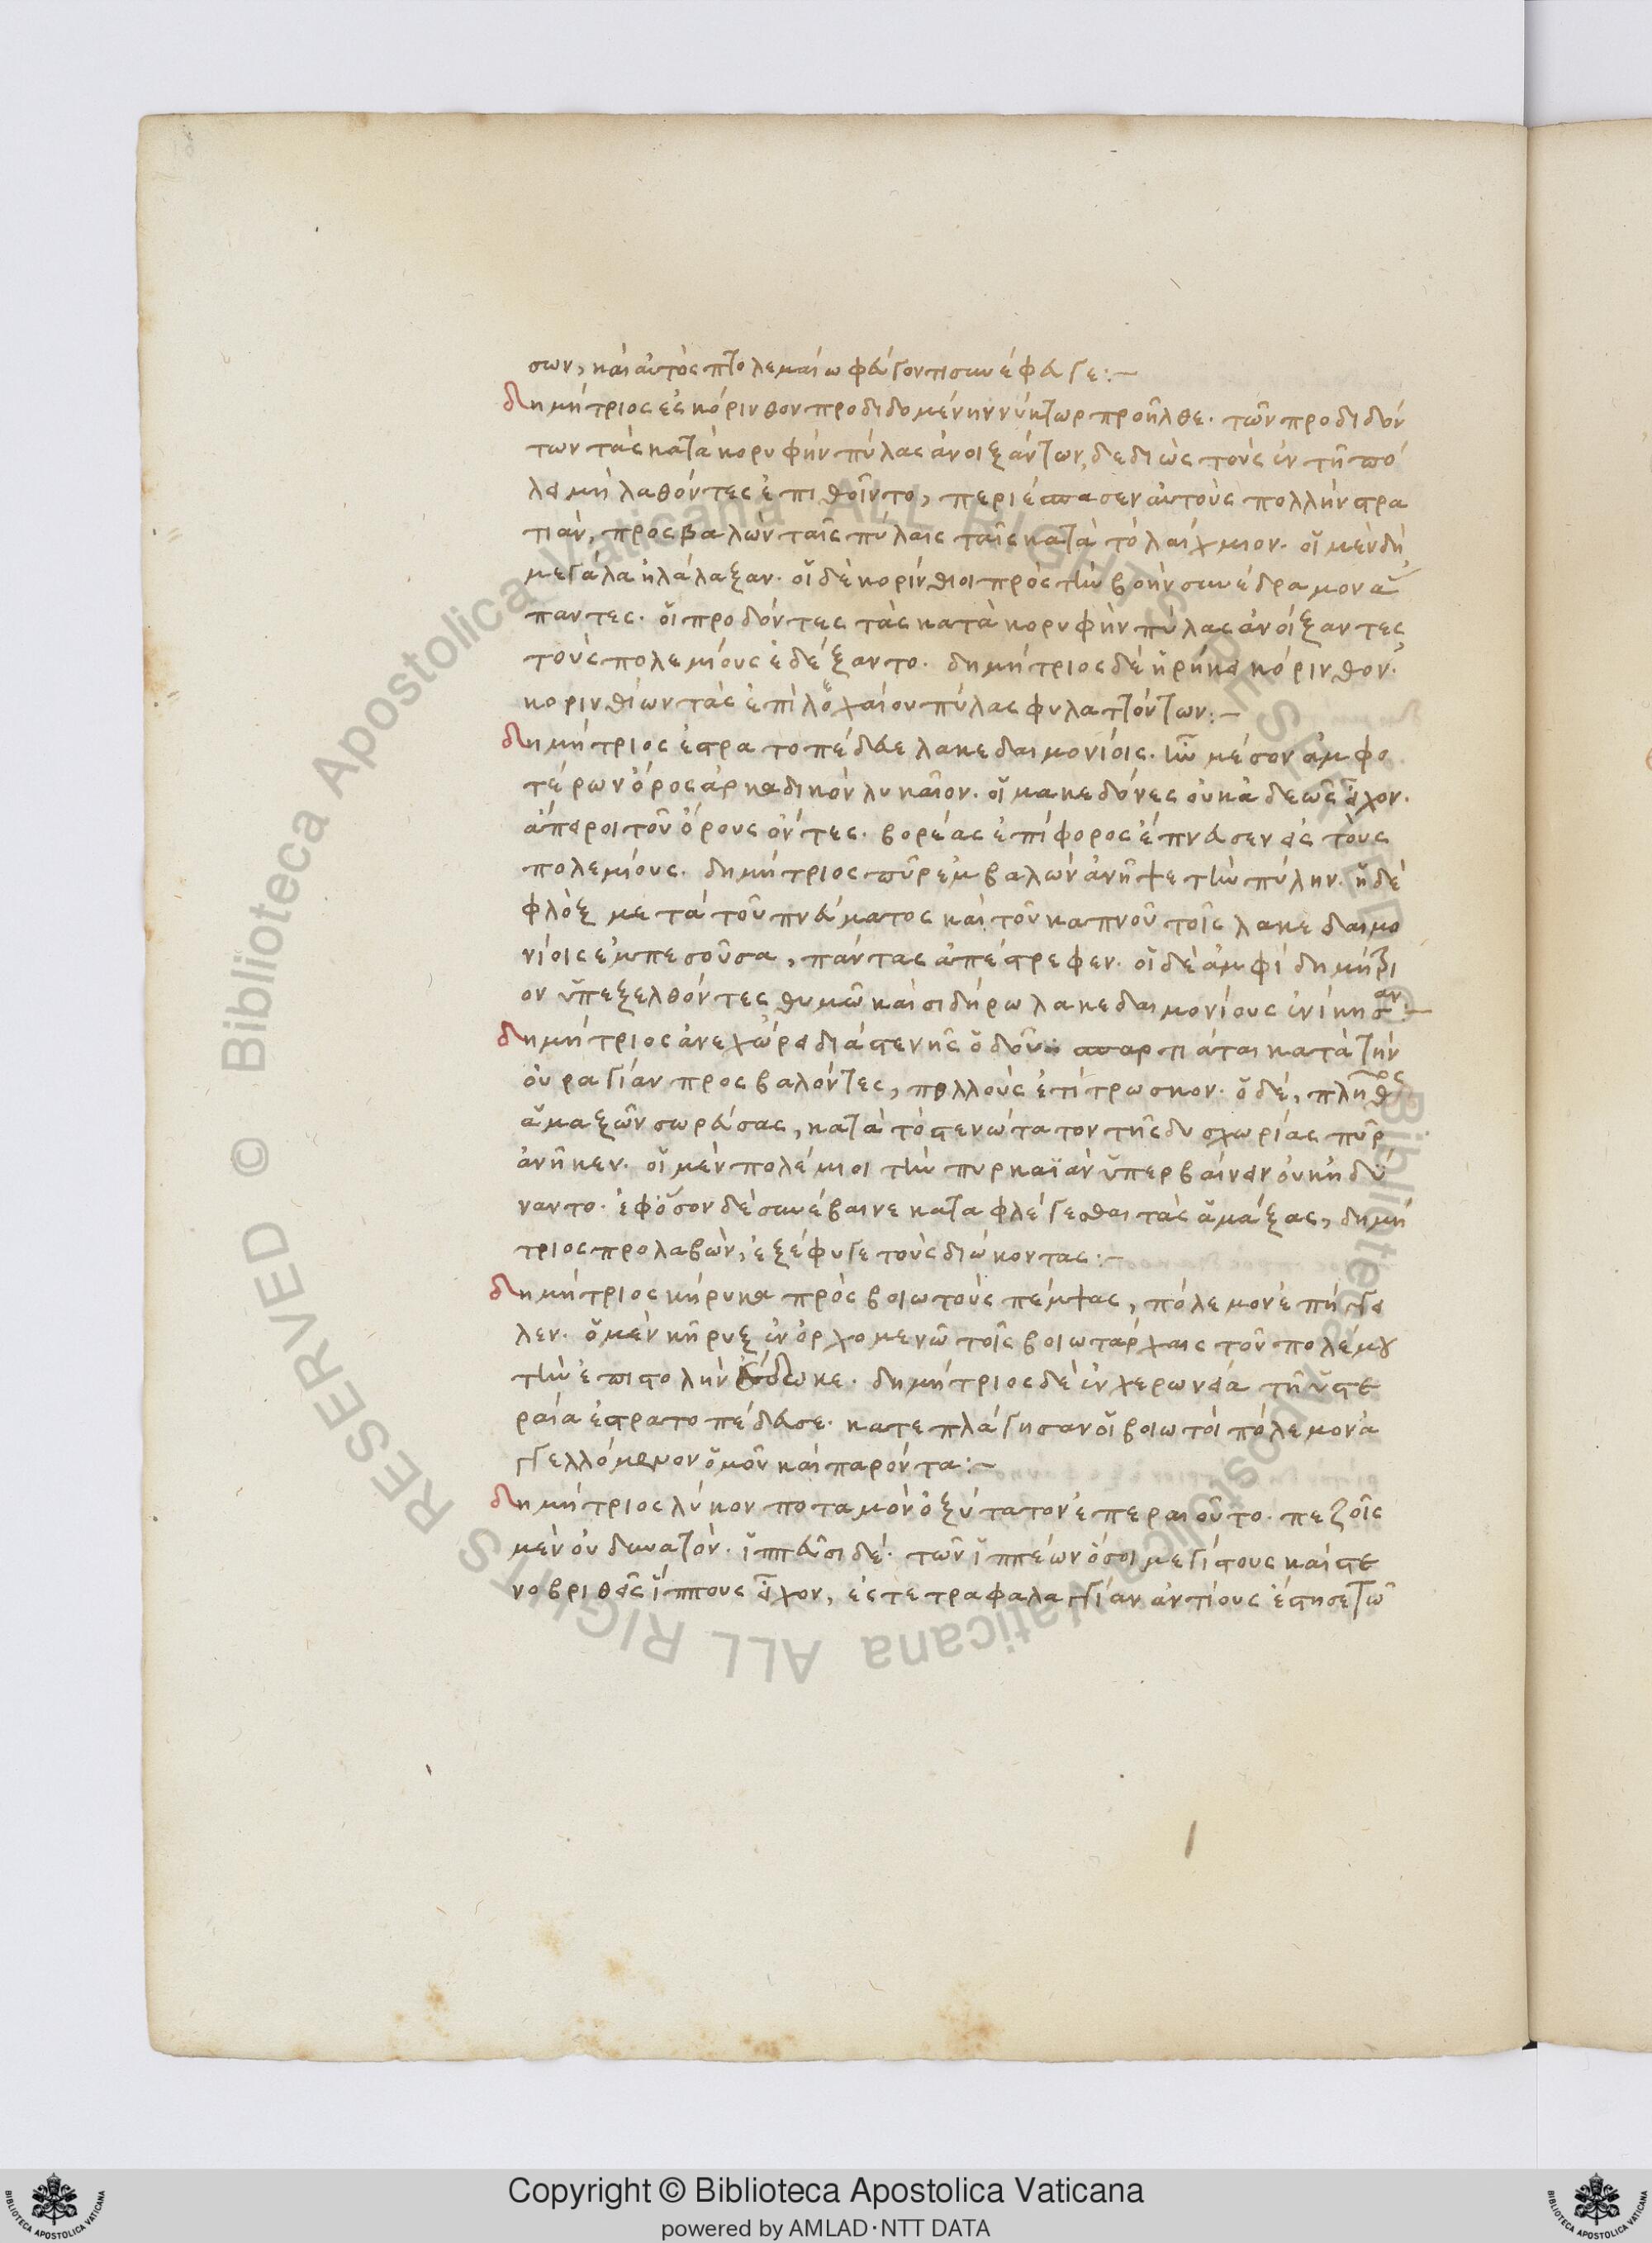 σων, καὶ αὐτὸς πτολεμαίω φεύγοντι συνέφευγε:~
δημήτριος ἐς κόρινθον προδιδομένην νύκτωρ προῆλθε. τῶν προδιδόν
των τὰς κατὰ κορυφὴν πύλας ἀνοιξάντων, δεδιὼς τοὺς ἐν τῆ πό
λει μὴ λαθόντες ἐπιθοῖντο, περιέσπασεν αὐτοὺς πολλὴν στρα
τιὰν, προσβαλὼν ταῖς πύλαις ταῖς κατὰ τὸ λαίχμιον. οἱ μὲν δὴ
μεγάλα ἠλάλαξαν. οἱ δὲ κορίνθιοι πρὸς τὴν βοὴν συνέδραμον ἅ
παντες. οἱ προδόντες τὰς κατὰ κορυφὴν πύλας ἀνοίξαντες
τοὺς πολεμίους ἐδέξαντο. δημήτριος δὲ ἥρηκει κόρινθον.
κορινθίων τὰς ἐπὶ λοχαίον πύλας φυλαττόντων:~
δημήτριος ἐστρατοπέδευε λακεδαιμονίοις. ἦν μέσον ἀμφο
τέρων ὄρος ἀρκαδικὸν λυκαῖον. οἱ μακεδόνες οὐκ ἀδεῶς εἶχον.
ἄπειροι τοῦ ὄρους ὄντες. βορέας ἐπίφορος ἔπνευσεν εἰς τοὺς
πολεμίους. δημήτριος πῦρ ἐμβαλὼν ἀνῆψε τὴν πύλην. ἡ δὲ
φλὸξ μετὰ τοῦ πνεύματος καὶ τοῦ καπνοῦ τοῖς λακεδαιμο
νίοις ἐμπεσοῦσα, πάντας ἀπέστρεφεν. οἱ δὲ ἀμφὶ δημήτρι
ον ὑπεξελθόντες θυμῶ καὶ σιδήρω λακεδαιμονίους ἐνίκησαν:~
δημήτριος ἀνεχώρει διὰ στενῆς ὁδοῦ: σπαρτιάται κατὰ τὴν
οὐραγίαν προσβαλόντες, πολλοὺς ἐτίτρωσκον. ὁ δὲ, πλῆθος
ἁμαξῶν σωρεύσας, κατὰ τὸ στενώτατον τῆς δυσχωρίας πῦρ
ἀνῆκεν. οἱ μὲν πολέμιοι τὴν πυρκαϊὰν ὑπερβαίνειν οὐκ ἠδύ
ναντο. ἐφόσον δὲ συνέβαινε καταφλέγεσθαι τὰς ἁμάξας, δημή
τριος προλαβὼν, ἐξέφυγε τοὺς διώκοντας:~
δημήτριος κήρυκα πρὸς βοιωτοὺς πέμψας, πόλεμον ἐπήγγει
λεν. ὁ μὲν κῆρυξ ἐν ὀρχομενῶ τοῖς βοιωτάρχαις τοῦ πολέμου
τὴν ἐπιστολὴν ἔδωκε. δημήτριος δὲ ἐν χερωνεία τῆ ὑστε
ραία ἐστρατοπέδευσε. κατεπλάγησαν οἱ βοιωτοὶ πόλεμον ἀ
γγελλόμενον ὁμοῦ καὶ παρόντα:~
δημήτριος λύκον ποταμὸν ὀξύτατον ἐπεραιοῦτο. πεζοῖς
μὲν οὐ δυνατὸν. ἱππεῦσι δέ. τῶν ἱππέων ὅσοι μεγίστους καὶ στε
νοβριθεῖς ἵππους εἶχον, ἐς τετραφαλαγγίαν ἀντίους ἔστησε τῶ
© Biblioteca Apostolica Vaticana ALL RIGHTS RESERVED © Biblioteca Apostolica Vaticana ALL RIGHTS RESERVED
Copyright © Biblioteca Apostolica Vaticana
powered by AMLAD·NTT DATA
BIBLIOTECA APOSTOLICA VATICANA
BIBLIOTECA APOSTOLICA VATICANA